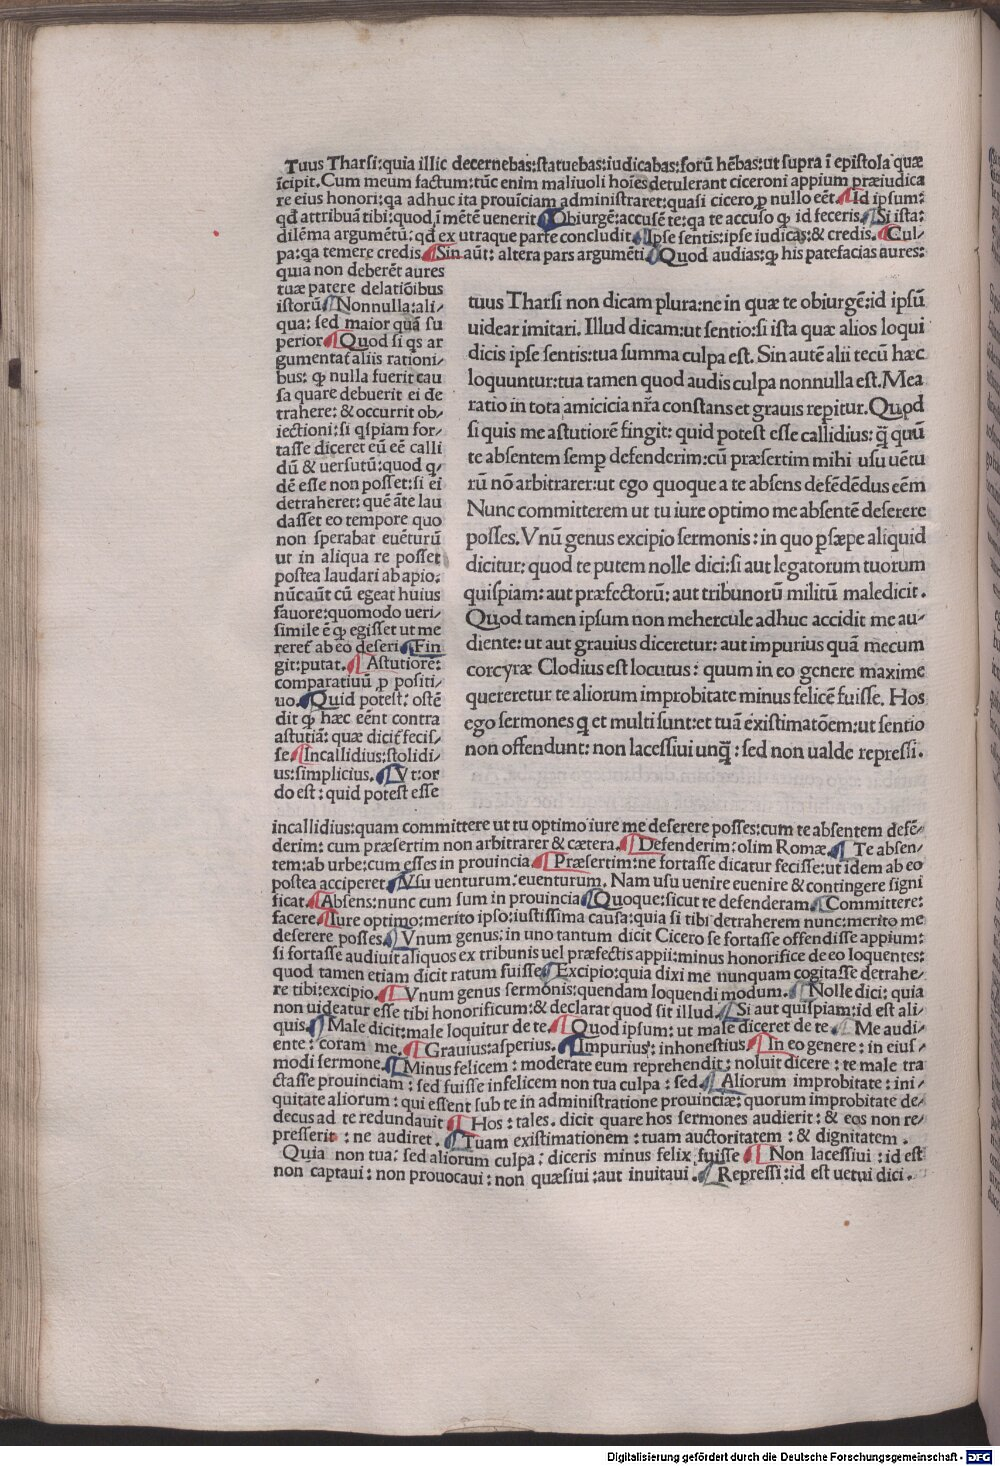 Tuus Tharsi:quia illic decernebas:ſtatuebas:iudicabas:forū hēbas:ut ſupra ī epiſtola quæ
īcipit.Cum meum factum:tūc enim maliuoli hoīes detulerant ciceroni appium præiudica
re eius honori:qa adhuc ita prouīciam adminiſtraret:quaſi cicero ꝑ nullo eēt.Id ipſum:
qd̄ attribuā tibi:quod ī mētē uenerit Obiurgē:accuſē te:qa te accuſo ꝙ id feceris.Si iſta:
dilēma argumētū:qd̄ ex utraque parte concludit Ipſe ſentis:ipſe iudicas:& credis.Cul⸗
pa:qa temere credis.Sin aūt:altera pars argumēti Quod audias:ꝙ his patefacias aures:
quia non deberēt aures
tuæ patere delatiōibus
iſtorū Nonnulla:ali⸗
qua:ſed maior quā ſu
perior Quod ſi qs ar
gumentat̄ aliis rationi⸗
bus:ꝙ nulla fuerit cau
ſa quare debuerit ei de
trahere:& occurrit ob⸗
iectioni:ſi qſpiam for⸗
taſſe diceret eū eē calli
dū & uerſutū:quod q⸗
dē eſſe non poſſet:ſi ei
detraheret:quē āte lau
daſſet eo tempore quo
non ſperabat euēturū
ut in aliqua re poſſet
poſtea laudari ab apio:
nūc aūt cū egeat huius
fauore:quomodo ueri⸗
ſimile ē ꝙ egiſſet ut me
reret̄ ab eo deſeri Fin
git:putat.Aſtutiore:
comparatiuū ꝓ poſiti⸗
uo.Quid poteſt:oſtē
dit ꝙ hæc eēnt contra
aſtutiā:quæ dicit̄ feciſ⸗
ſe.Incallidius:ſtolidi⸗
us:ſimplicius.Vt:or
do eſt:quid poteſt eſſe
tuus Tharſi non dicam plura:ne in quæ te obiurgē:id ipſū
uidear imitari.Illud dicam:ut ſentio:ſi iſta quæ alios loqui
dicis ipſe ſentis:tua ſumma culpa eſt.Sin autē alii tecū hæc
loquuntur:tua tamen quod audis culpa nonnulla eſt.Mea
ratio in tota amicicia nr̄a conſtans et grauis reꝑitur.Quod
ſi quis me aſtutiorē fingit:quid poteſt eſſe callidius:q̄ quū
te abſentem ſemꝑ defenderim:cū præſertim mihi uſu uētu
rū nō arbitrarer:ut ego quoque a te abſens defēdēdus eēm
Nunc committerem ut tu iure optimo me abſentē deſerere
poſſes.Vnū genus excipio ſermonis:in quo ꝑſæpe aliquid
dicitur:quod te putem nolle dici:ſi aut legatorum tuorum
quiſpiam:aut præfectorū:aut tribunorū militū maledicit.
Quod tamen ipſum non mehercule adhuc accidit me au⸗
diente:ut aut grauius diceretur:aut impurius quā mecum
corcyræ Clodius eſt locutus:quum in eo genere maxime
quereretur te aliorum improbitate minus felicē fuiſſe.Hos
ego ſermones q et multi ſunt:et tuā exiſtimatōem:ut ſentio
non offendunt:non laceſſiui unq̄:ſed non ualde repreſſi.
incallidius:quam committere ut tu optimo iure me deſerere poſſes:cum te abſentem defē⸗
derim:cum præſertim non arbitrarer & cætera.Defenderim:olim Romæ.Te abſen⸗
tem:ab urbe:cum eſſes in prouincia.Præſertim:ne fortaſſe dicatur feciſſe:ut idem ab eo
poſtea acciperet Vſu uenturum:euenturum.Nam uſu uenire euenire & contingere ſigni
ficat.Abſens:nunc cum ſum in prouincia Quoque:ſicut te defenderam.Committere:
facere Iure optimo:merito ipſo:iuſtiſſima cauſa:quia ſi tibi detraherem nunc:merito me
deſerere poſſes.Vnum genus:in uno tantum dicit Cicero ſe fortaſſe offendiſſe appium:
ſi fortaſſe audiuit aliquos ex tribunis uel præfectis appii:minus honorifice de eo loquentes:
quod tamen etiam dicit ratum fuiſſe Excipio:quia dixi me nunquam cogitaſſe detrahe⸗
re tibi:excipio.Vnum genus ſermonis:quendam loquendi modum.Nolle dici:quia
non uideatur eſſe tibi honorificum:& declarat quod ſit illud.Si aut quiſpiam:id eſt ali⸗
quis.Male dicit:male loquitur de te.Quod ipſum:ut male diceret de te Me audi⸗
ente:coram me.Grauius:aſperius.Impurius:inhoneſtius.In eo genere:in eiuſ⸗
modi ſermone.Minus felicem:moderate eum reprehendit:noluit dicere:te male tra
ctaſſe prouinciam:ſed fuiſſe infelicem non tua culpa:ſed Aliorum improbitate:ini⸗
quitate aliorum:qui eſſent ſub te in adminiſtratione prouinciæ:quorum improbitate de⸗
decus ad te redundauit Hos:tales.dicit quare hos ſermones audierit:& eos non re⸗
preſſerit:ne audiret.Tuam exiſtimationem:tuam auctoritatem:& dignitatem.
Quia non tua:ſed aliorum culpa:diceris minus felix fuiſſe Non laceſſiui:id eſt
non captaui:non prouocaui:non quæſiui:aut inuitaui.Repreſſi:id eſt uetui dici.
Digitalisierung gefördert durch die Deutsche Forschungsgemeinschaft - DFG